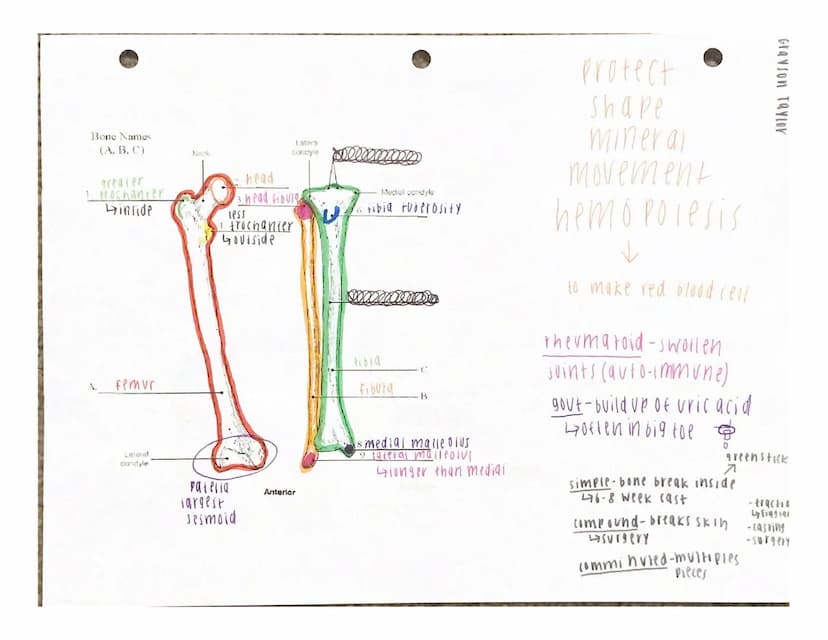 Grayson Taylor
Bone Names
(A, B, C)
Neck
greater
1. trochanter
↳inside
2. head
3. head fibula
less
trochanter
↳outside
A. femur
Lateral
condyle
patella
largest
sesmoid
Anterior
Lateral
condyle
Medial condyle
6. tibia tuberosity
tibia C
fibula B
8 medial malleolus
9. lateral malleolus
↳longer than medial
protect
shape
mineral
movement
hemopoiesis
↓
to make red blood cell
rheumatoid-swollen
joints (auto-immune)
gout-build up of uric acid
↳often in big toe
greenstick
simple-bone break inside
↳6-8 week cast
compound-breaks skin
↳surgery
comminuted-multiples
pieces
-casting
-surgery